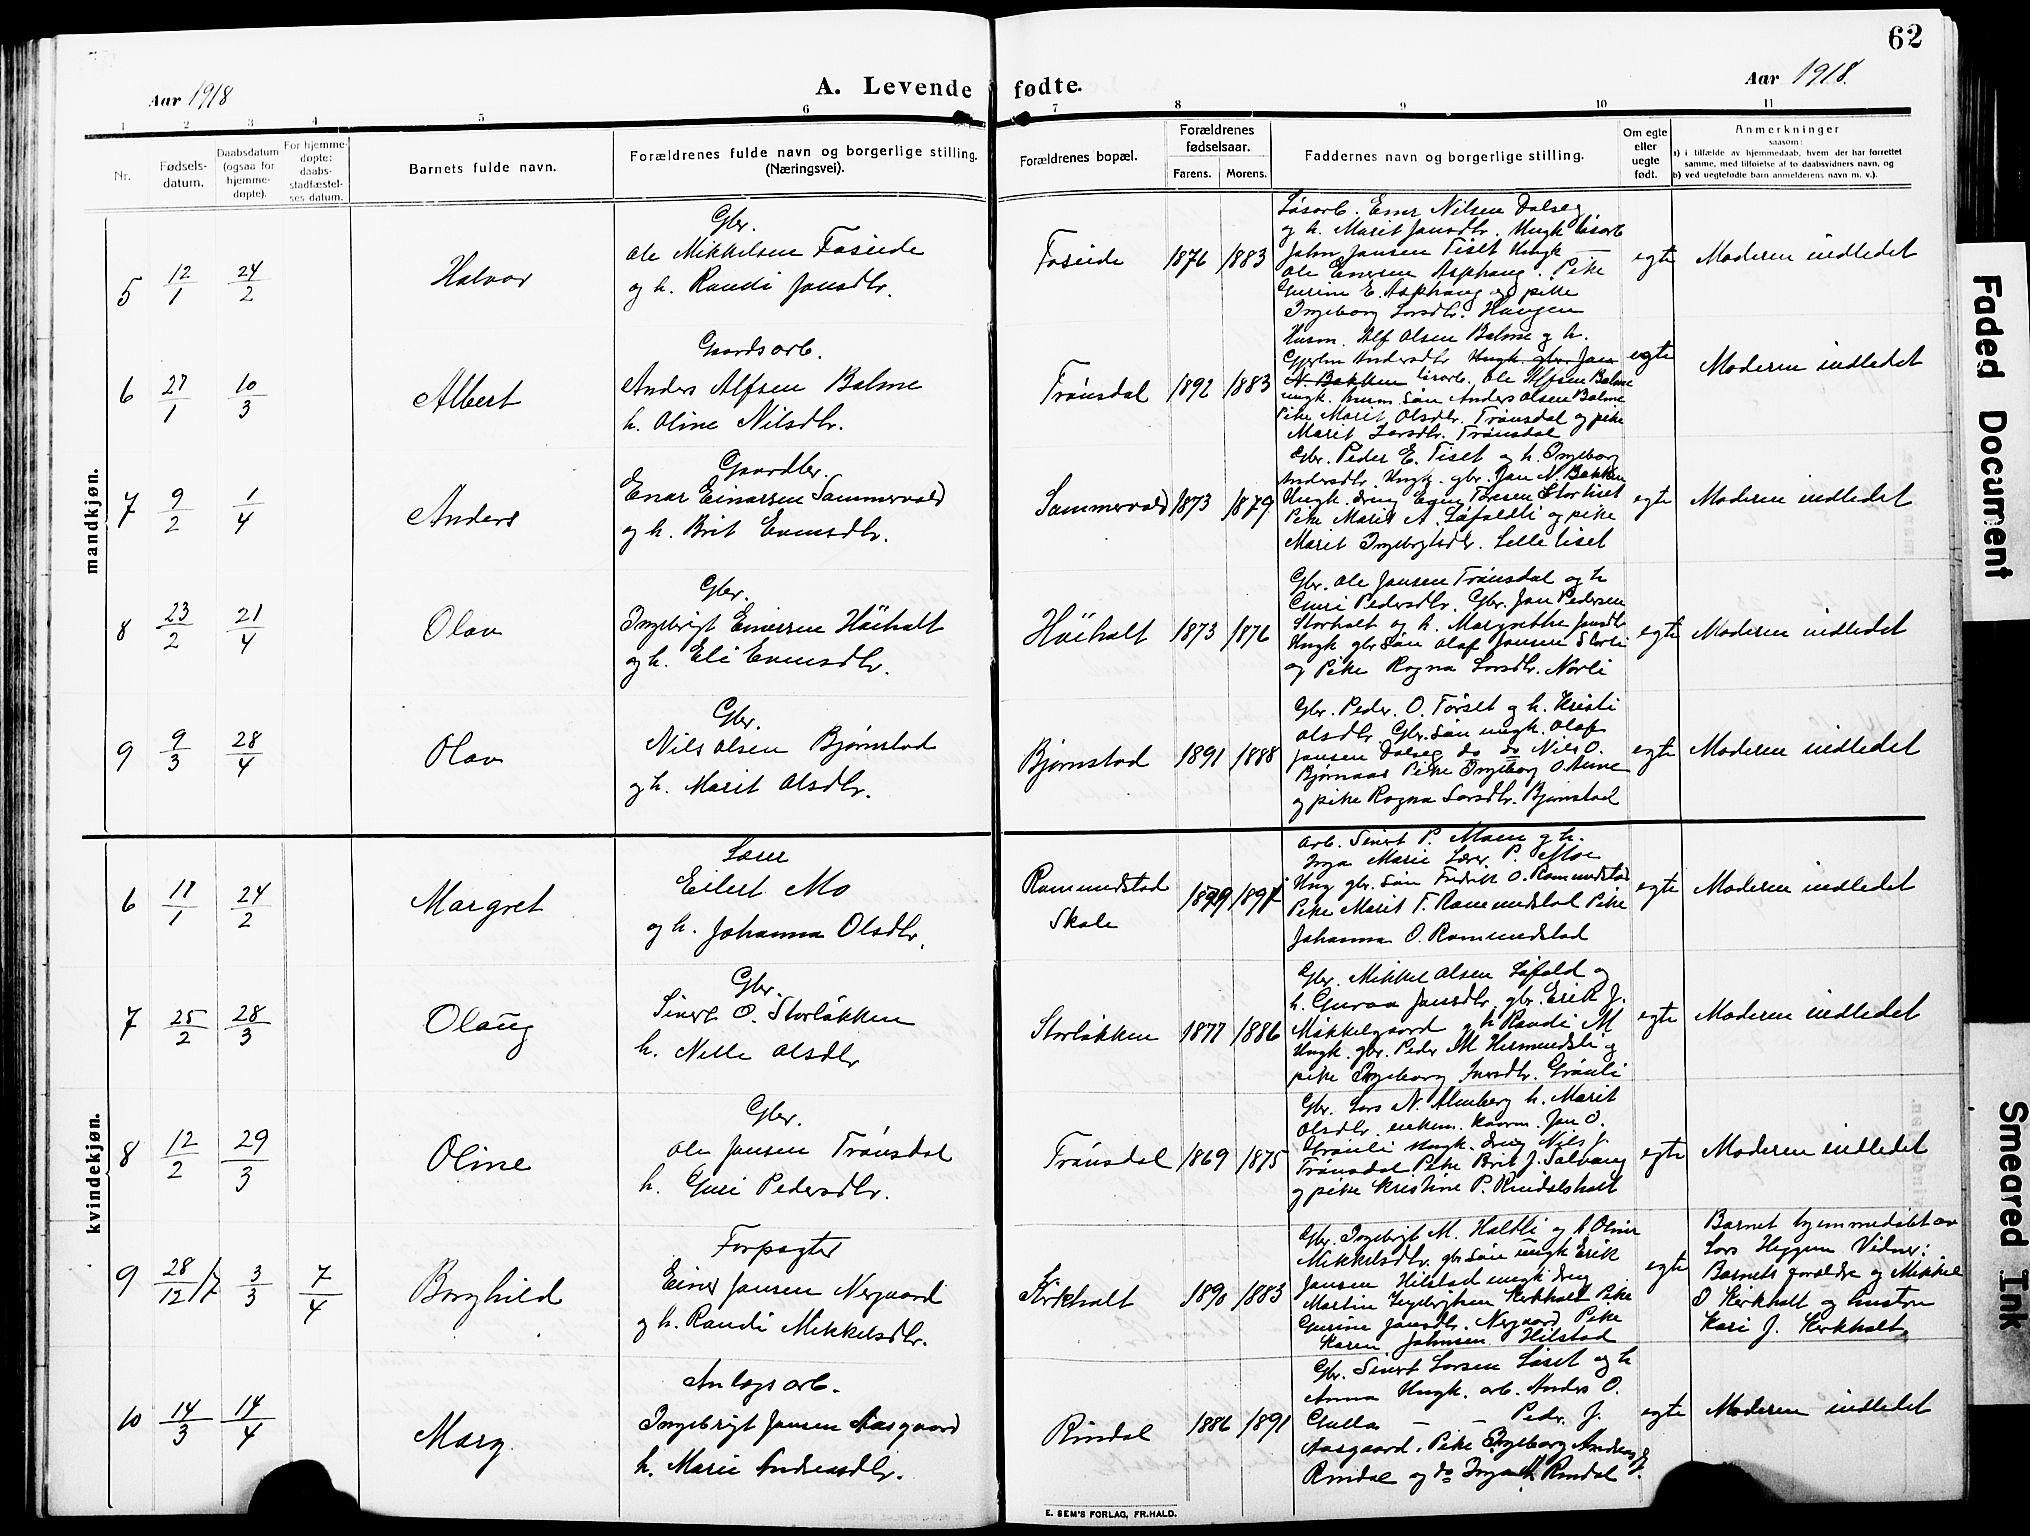 62
Aar 1918
A. Levende fødte.
Aar 1918.
1 2 3 4 5 6 7 8 9 10 11
Nr.
Fødsels-
datum.
Daabsdatum
(ogsaa for
hjemme-
døpte).
For hjemme-
døpte:
daabs-
stadfæstel-
ses datum.
Barnets fulde navn.
Forældrenes fulde navn og borgerlige stilling.
(Næringsvei).
Forældrenes bopæl.
Forældrenes
fødselsaar.
Farens. Morens.
Faddernes navn og borgerlige stilling.
Om egte
eller
uegte
født.
Anmerkninger
saasom:
a) i tilfælde av hjemmedaab, hvem der har forrettet
samme, med tilføielse af to daabsvidners navn, og
b) ved uegtefødte barn anmelderens navn m. v.).
mandkjøn.
5 12/1 24/2 Halvor
Gbr.
Ole Mikkelsen Foseide
og h. Randi Jonsdtr.
Foseide 1876 1883
Løsarb. Einr Nilsen Dalseg
og h. Marit Jonsdtr. Ungk løsarb
John Jansen Tiset Ungk —
Ole Einersen Asphaug. Pike
Gurine E. Asphaug og pike
Ingeborg Larsdtr. Haugen
egte Moderen indledet
6 27/1 10/3 Albert
Gaardsarb.
Anders Alfsen Balme
h. Oline Nilsdtr.
Trønsdal 1892 1883
Husm. Alf Olsen Balme og h.
Andersdtr Ungk. gbr. Jan
N. Bakken løsarb. Ole Alfsen Balme
ungk. husm. søn Anders Olsen Balme
Pike Marit Olsdtr. Trønsdal og pike
Marit Larsdtr. Trønsdal
egte Moderen indledet
7 9/2 1/4 Anders
Gaardbr.
Enar Einarsen Sammervold
og h. Brit Evensdtr.
Sammervold 1873 1879
Gbr. Peder E. Tiset og h. Ingeborg
Andersdtr. Ungk. gbr. Jan N. Bakken
Ungk. dreng Storliset
Pike Marit A. Løfaldli og pike
Marit Ingebrigtsdtr. Lilletiset
egte Moderen indledet
8 23/2 21/4 Olav
Gbr.
Ingebrigt Einersen Höiholt
og h. Eli Evensdtr.
Höiholt 1873 1876
Gbr. Ole Jansen Trønsdal og h
Guri Pedersdtr. Gbr. Jan Pedersen
Storholt og h. Margrethe Jansdtr
Ungk gbr søn Olaf Jansen Storli
og Pike Ragna Larsdtr. Norli
egte Moderen indledet
9 9/3 28/4 Olav
Gbr.
Nils Olsen Bjørnstad
og h. Marit Olsdtr.
Bjørnstad 1891 1888
Gbr. Peder. O. Tørset og h. Kristi
Olsdtr Gbr. søn ungk. Olaf
Jansen Dalseg do do Nils O.
Bjørnaas Pike Ingeborg O. Aune
og pike Ragna Larsdtr. Bjørnstad
egte Moderen indledet
kvindekjøn.
6 17/1 24/2 Margret
Lærer
Eilert Mo
og h. Johanna Olsdtr.
Romundstad
Skole
Arb. Sivert P. Moen og h.
Inga Marie Lærer P. Moe
Ung gbr. søn Fredrik O. Romundstad
Pike Marit F. Romundstad Pike
Johanna O. Romundstad
egte Moderen indledet
7 25/2 28/3 Olaug
Gbr.
Sivert O. Storløkken
h. Nille Olsdtr
Storløkken 1877 1886
Gbr. Mikkel Olsen Løfald og
h. Guraa Jansdtr, gbr. Erik J.
Mikkelgaard og h Randi M
Ungk. gbr. Peder M Hermundsli og
pike Ingeborg Larsdtr. Grönli
egte Moderen indledet
8 12/2 29/3 Oline
Gbr.
Ole Jansen Trønsdal
h. Guri Pedersdtr.
Trønsdal 1869 1875
Gbr. Lars N. Almberg h. Marit
Olsdtr. enkem. kaarm. Jan O.
Grønli Ungk. dreng Nils J.
Trønsdal Pike Brit J. Salvang
og pike Kristine P. Rindalsholt
egte Moderen indledet
9 28/12 17 3/3 7/4 Borghild
Forpagter
Einer Jansen Nergaard
og h. Randi Mikkelsdtr.
1890 1883
Gbr. Ingebrigt M. Holdli og h Oline
Mikkelsdtr. gbr søn ungk Erik
Jansen Hilstad ungk dreng
Martin Ingebrigtsen Kerkholt Pike
Gurine Jansdtr. Nergaard, Pike
Karen Johnsen Hilstad
egte
Barnet hjemmedøbt av
Lars Heggem Vidner:
Barnets forældre og Mikkel
O Kerkholt og hustru
Kari J. Kerkholt.
10 14/3 14/4 Mary
Anlægsarb.
Ingebrigt Jansen Aasgaard
h. Marie Andreasdtr.
Rindal 1886 1891
Gbr. Sivert Larsen Løset og h
Anna Ungk. arb. Anders O.
Gulla — — Peder J.
Aasgaard. Pike Ingeborg Andreas J.
Rindal og do Inga M. Rindal
egte Moderen indledet
E. SEM'S FORLAG, FR.HALD.
Faded Document
Smeared Ink